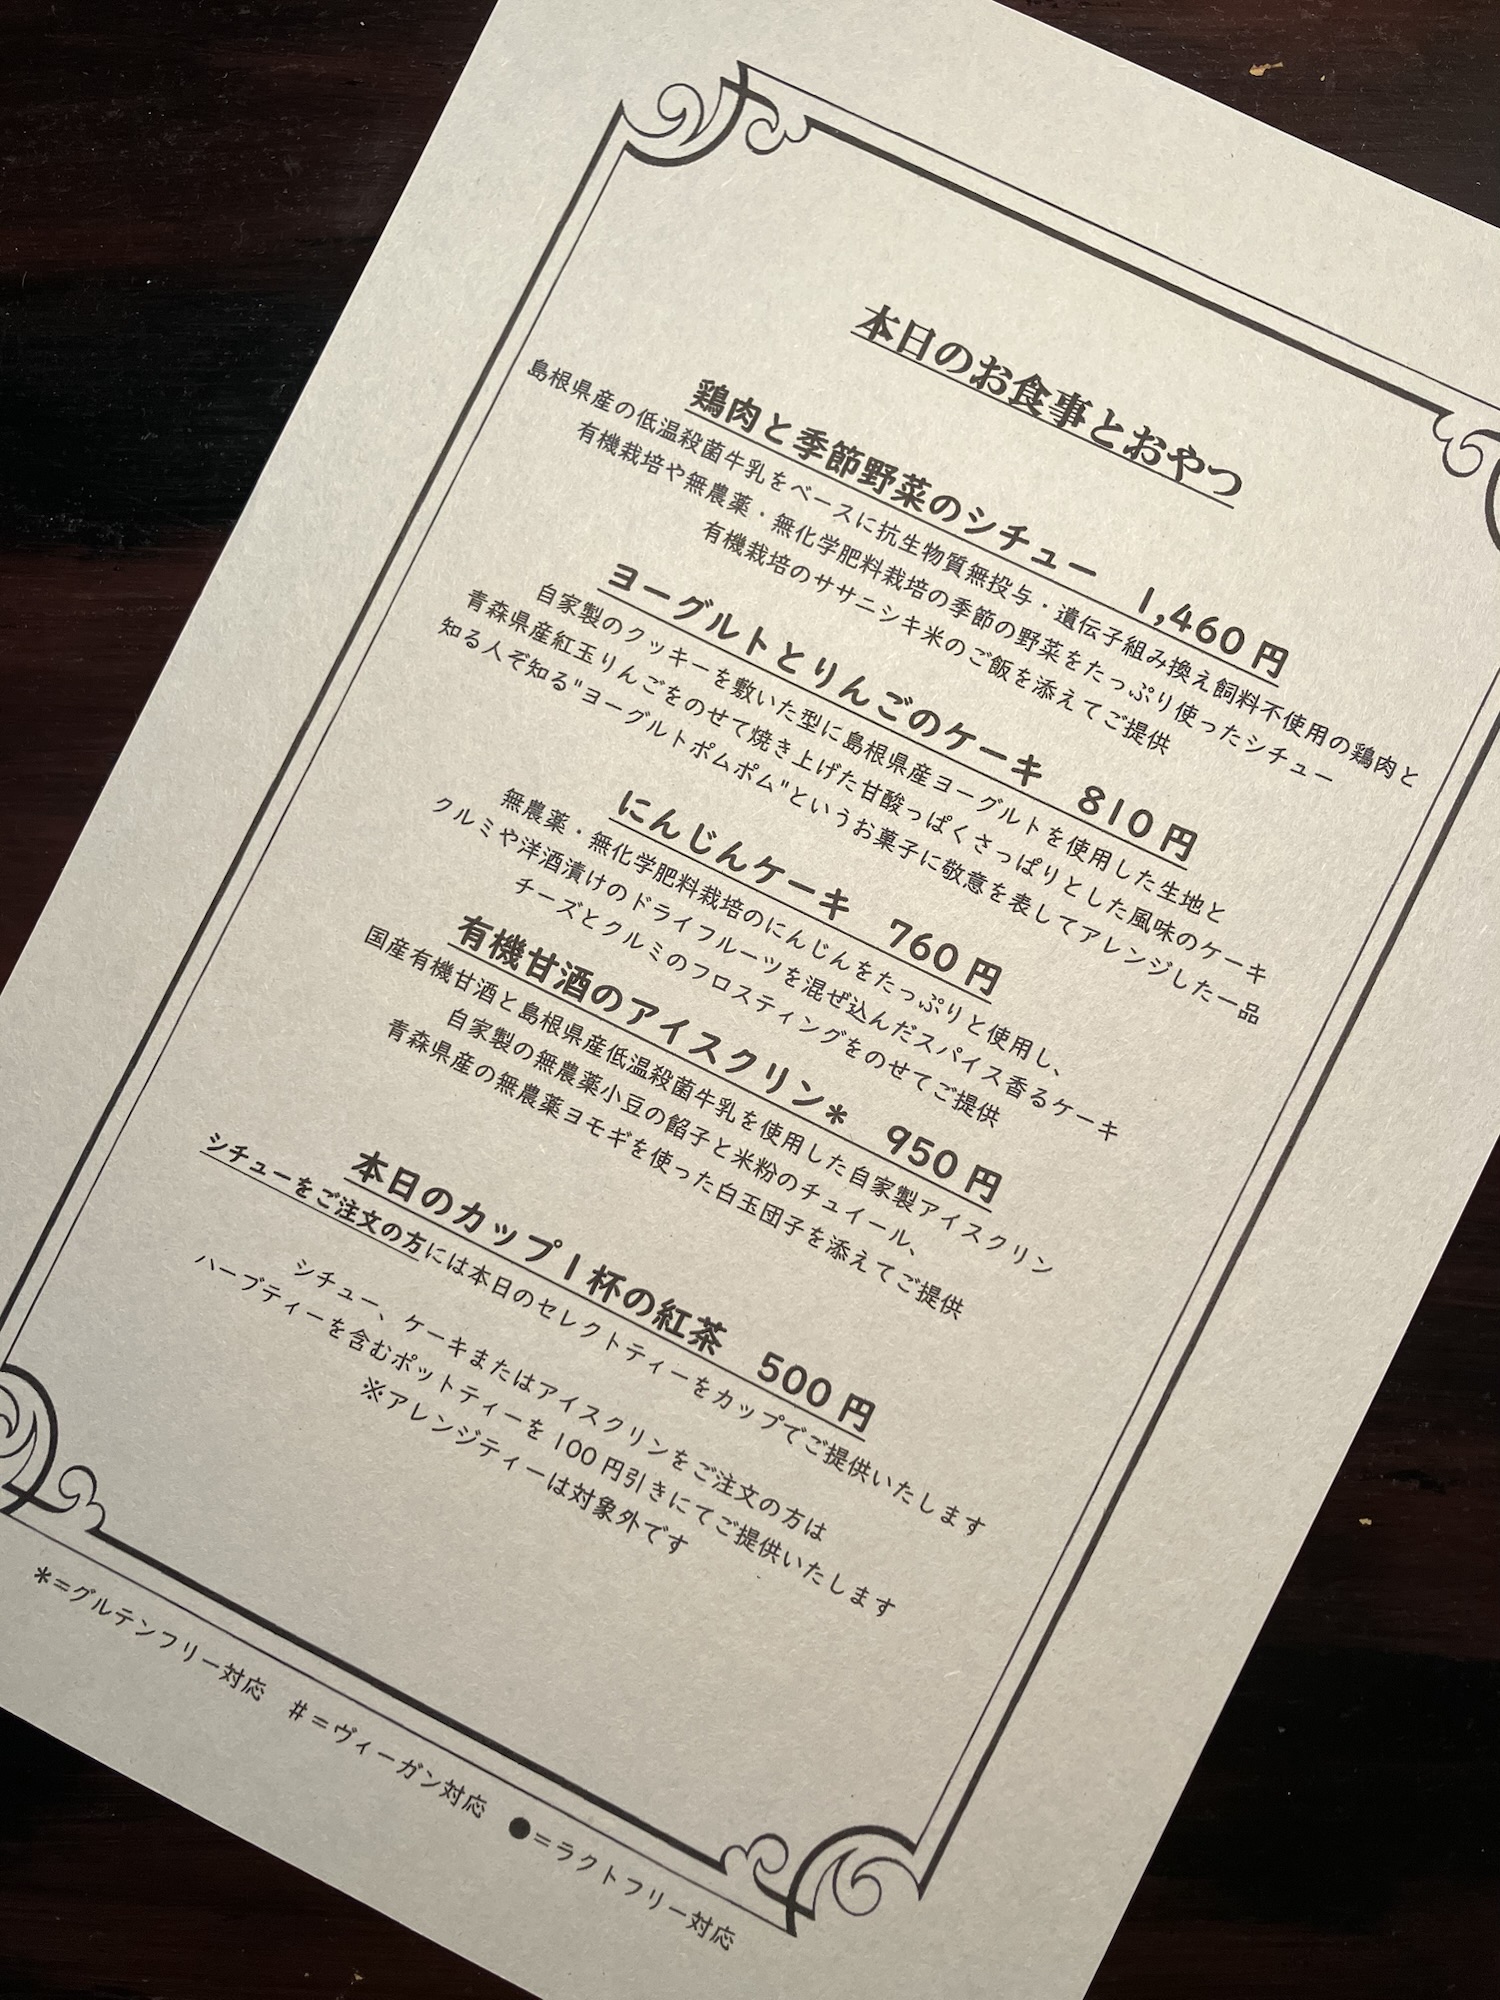 本日のお食事とおやつ
鶏肉と季節野菜のシチュー 1,460 円
島根県産の低温殺菌牛乳をベースに抗生物質無投与・遺伝子組み換え飼料不使用の鶏肉と
有機栽培や無農薬・無化学肥料栽培の季節の野菜をたっぷり使ったシチュー
有機栽培のササニシキ米のご飯を添えてご提供
ヨーグルトとりんごのケーキ 810 円
自家製のクッキーを敷いた型に島根県産ヨーグルトを使用した生地と
青森県産紅玉りんごをのせて焼き上げた甘酸っぱくさっぱりとした風味のケーキ
知る人ぞ知る"ヨーグルトポムポム"というお菓子に敬意を表してアレンジした一品
にんじんケーキ 760 円
無農薬・無化学肥料栽培のにんじんをたっぷりと使用し、
クルミや洋酒漬けのドライフルーツを混ぜ込んだスパイス香るケーキ
チーズとクルミのフロスティングをのせてご提供
有機甘酒のアイスクリン* 950 円
国産有機甘酒と島根県産低温殺菌牛乳を使用した自家製アイスクリン
自家製の無農薬小豆の餡子と米粉のチュイール、
青森県産の無農薬ヨモギを使った白玉団子を添えてご提供
本日のカップ1杯の紅茶 500 円
シチューをご注文の方には本日のセレクトティーをカップでご提供いたします
シチュー、ケーキまたはアイスクリンをご注文の方は
ハーブティーを含むポットティーを 100 円引きにてご提供いたします
※アレンジティーは対象外です
*=グルテンフリー対応 #=ヴィーガン対応 ●=ラクトフリー対応